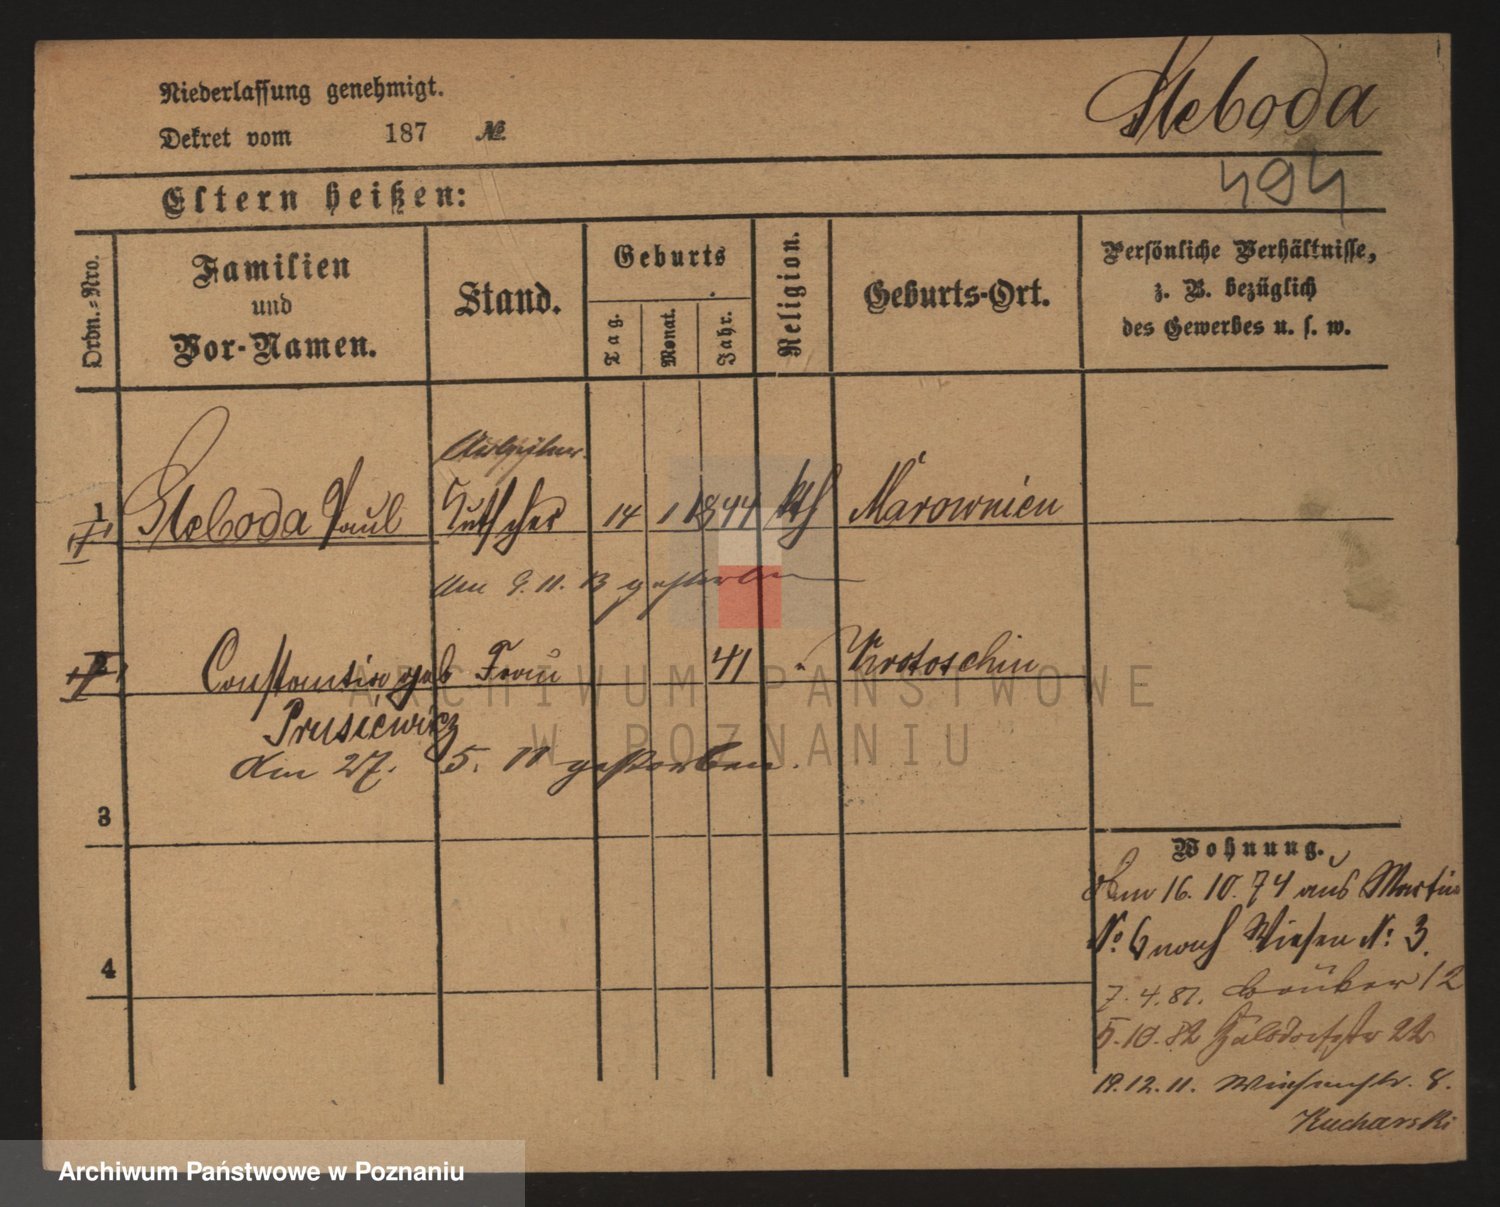 Niederlassung genehmigt.
Dekret vom 187 №
Steboda
494
Eltern heißen:
Ordn.-Nro.
Familien
und
Vor-Namen.
Stand.
Geburts
Tag.
Monat.
Jahr.
Religion.
Geburts-Ort.
Persönliche Verhältnisse,
z. B. bezüglich
des Gewerbes u. s. w.
Arbeiter
1 Steboda Paul Kutscher 14 1 1844 kth Marownien
am 9.11.13 gestorben
2 Constantia geb Frau 41 " Krotoschin
Prusiewicz
Am 27. 5. 11 gestorben.
3
4
Wohnung.
16. 10. 74 aus Martin
No. 6 nach Wiesen N: 3.
7.4.81. 12
5.10.82 22
19.12.11. Wiesenstr. 8.
Kucharski
ARCHIWUM PAŃSTWOWE
W POZNANIU
Archiwum Państwowe w Poznaniu